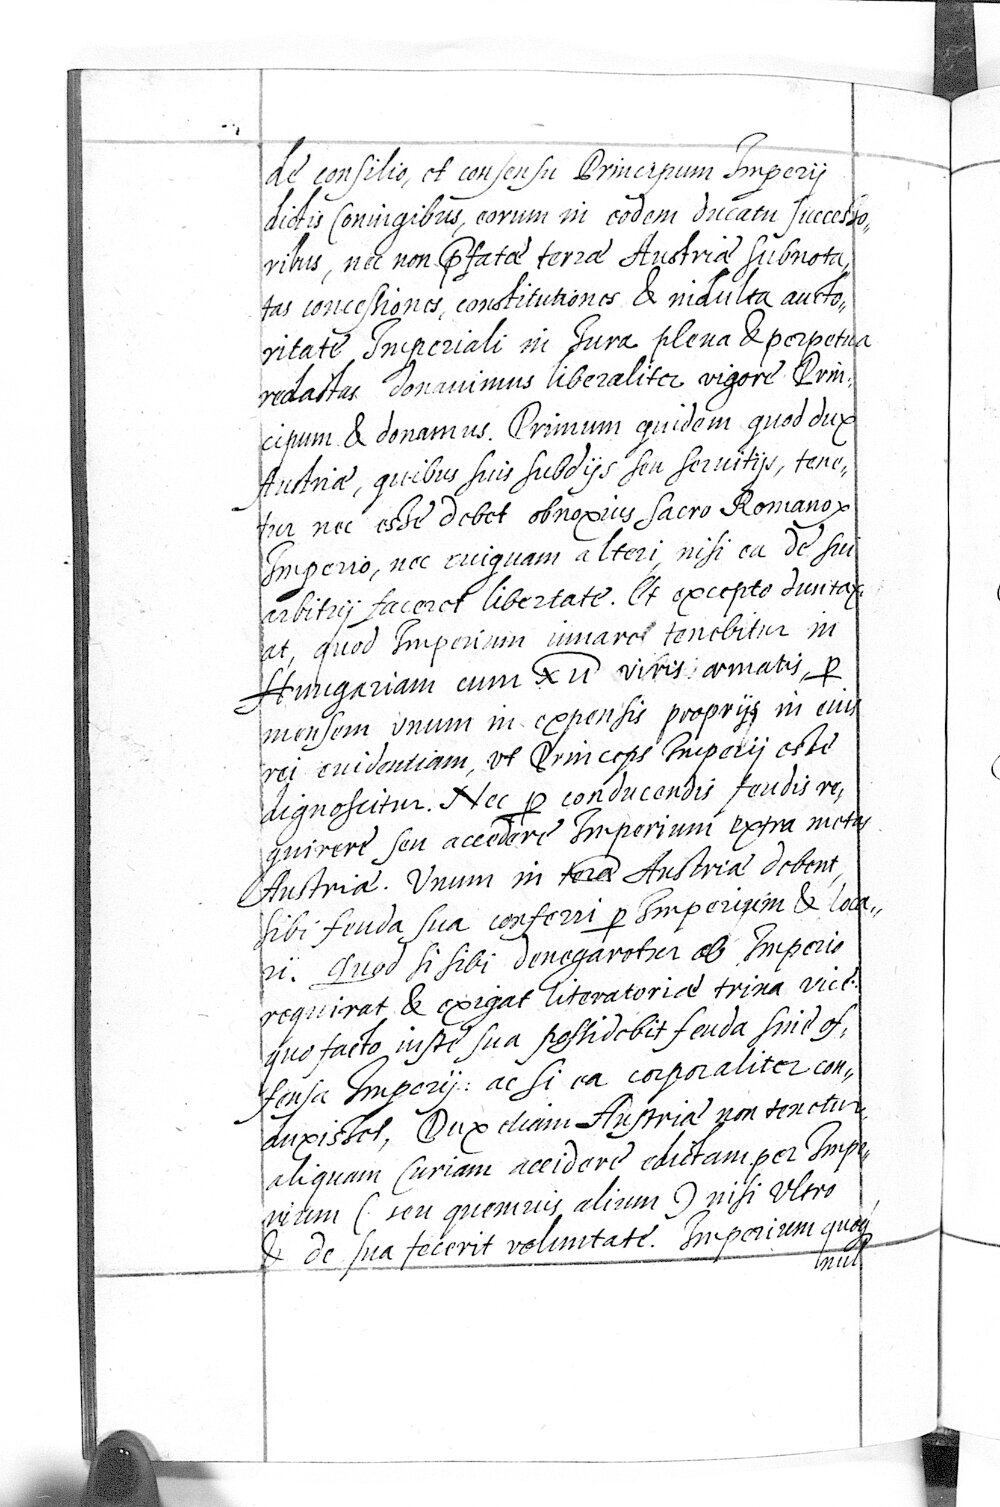 de consilio, et consensu Principum Imperij
dictis Coniugibus, eorum in eodem ducatu successo„
ribus, nec non pfatæ terræ Austriæ subnota,
tas concessiones, constitutiones & indulta aucto„
ritate Imperiali in Jura plena & perpetua
redactas donauimus liberaliter vigore Prin„
cipum & donamus. Primum quidem quod dux
Austriæ, quibus suis subdijs seu seruitijs, tene„
tur nec esse debet obnoxius sacro Romano
Imperio, nec cuiquam alteri, nisi ea de sui
arbitrij faceret libertate. Et excepto duntax„
at, quod Imperium iuuare tenebitur in
Hungariam cum XII viris armatis, p
mensem vnum in expensis proprijs in eius
rei euidentiam, vt Princeps Imperij esse
dignoscitur. Nec p conducendis feudis re„
quirere seu accedere Imperium extra metas
Austriæ. Vnum in terra Austriæ debent,
sibi feuda sua conferri p Imperium & loca„
ri. Quod si sibi denegaretur ab Imperio
requirat & exigat literatorie trina vice.
quo facto iuste sua possidebit feuda sine of„
fensa Imperij: ac si ea corporaliter con„
duxisset, Dux etiam Austriæ non tenetur
aliquam Curiam accidere edictam per Impe„
rium (: seu quemuis alium :) nisi Vltro
& de sua fecerit voluntate. Imperium quoq
nul